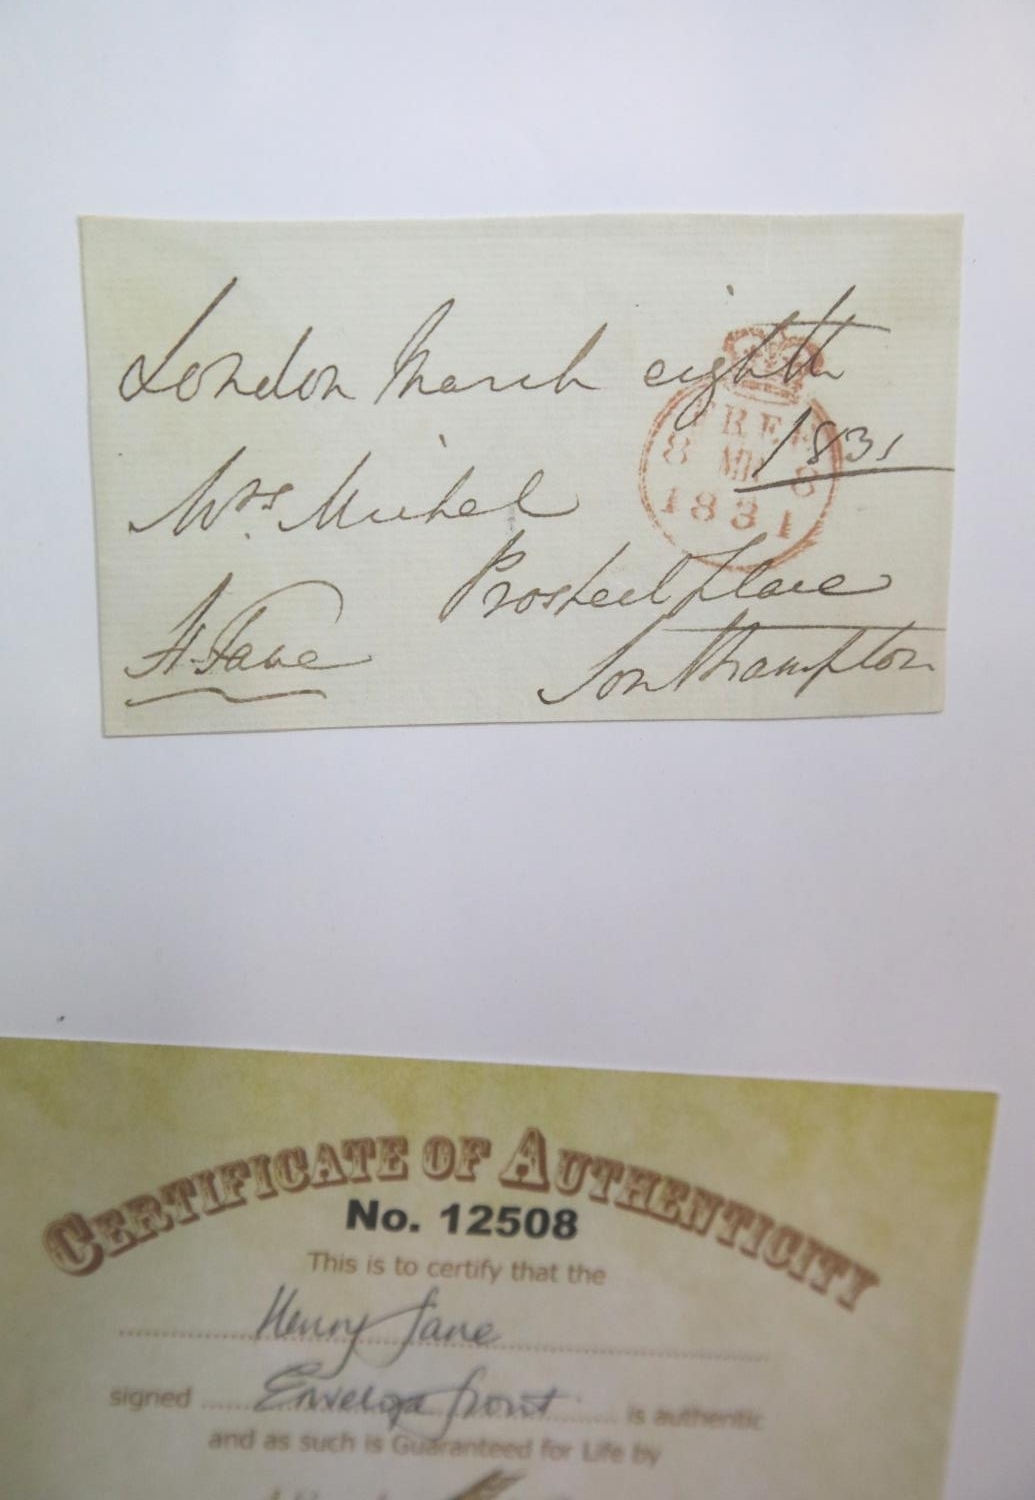 London March eighth
1831
Mrs. Michel
Prospect place
Southampton
H. Fane
FREE
8 MR 8
1831
CERTIFICATE OF AUTHENTICITY
No. 12508
This is to certify that the
Henry Fane
signed Envelope front is authentic
and as such is Guaranteed for Life by